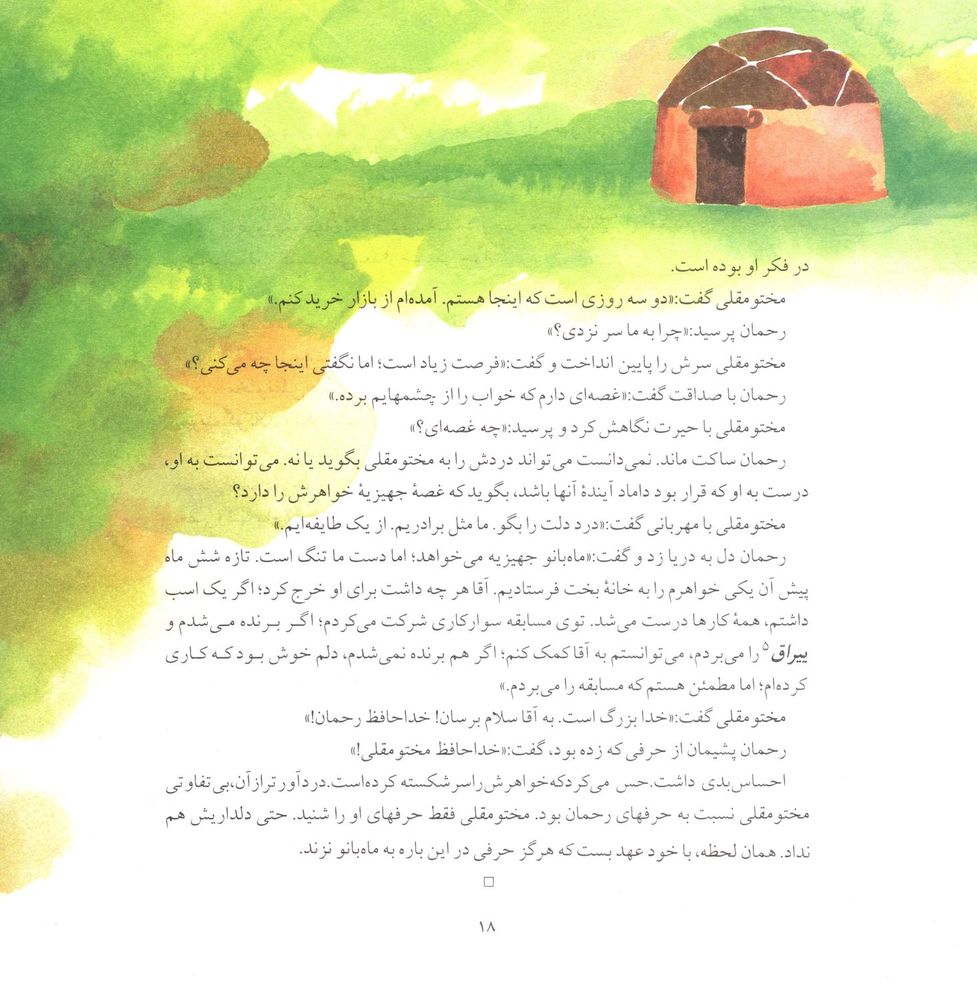 در فکر او بوده است.
مختومقلی گفت:«دو سه روزی است که اینجا هستم. آمده‌ام از بازار خرید کنم.»
رحمان پرسید:«چرا به ما سر نزدی؟»
مختومقلی سرش را پایین انداخت و گفت:«فرصت زیاد است؛ اما نگفتی اینجا چه می‌کنی؟»
رحمان با صداقت گفت:«غصه‌ای دارم که خواب را از چشمهایم برده.»
مختومقلی با حیرت نگاهش کرد و پرسید:«چه غصه‌ای؟»
رحمان ساکت ماند. نمی‌دانست می‌تواند دردش را به مختومقلی بگوید یا نه. می‌توانست به او،
درست به او که قرار بود داماد آیندهٔ آنها باشد، بگوید که غصهٔ جهیزیهٔ خواهرش را دارد؟
مختومقلی با مهربانی گفت:«درد دلت را بگو. ما مثل برادریم. از یک طایفه‌ایم.»
رحمان دل به دریا زد و گفت:«ماه‌بانو جهیزیه می‌خواهد؛ اما دست ما تنگ است. تازه شش ماه
پیش آن یکی خواهرم را به خانهٔ بخت فرستادیم. آقا هر چه داشت برای او خرج کرد؛ اگر یک اسب
داشتم، همهٔ کارها درست می‌شد. توی مسابقه سوارکاری شرکت می‌کردم؛ اگـر بـرنده مـی‌شدم و
ییراق۵ را می‌بردم، می‌توانستم به آقا کمک کنم؛ اگر هم برنده نمی‌شدم، دلم خوش بـود کـه کـاری
کرده‌ام؛ اما مطمئن هستم که مسابقه را می‌بردم.»
مختومقلی گفت:«خدا بزرگ است. به آقا سلام برسان! خداحافظ رحمان!»
رحمان پشیمان از حرفی که زده بود، گفت:«خداحافظ مختومقلی!»
احساس بدی داشت. حس می‌کرد که خواهرش را سر شکسته کرده است. دردآورتر از آن، بی‌تفاوتی
مختومقلی نسبت به حرفهای رحمان بود. مختومقلی فقط حرفهای او را شنید. حتی دلداریش هم
نداد. همان لحظه، با خود عهد بست که هرگز حرفی در این باره به ماه‌بانو نزند.
□
۱۸